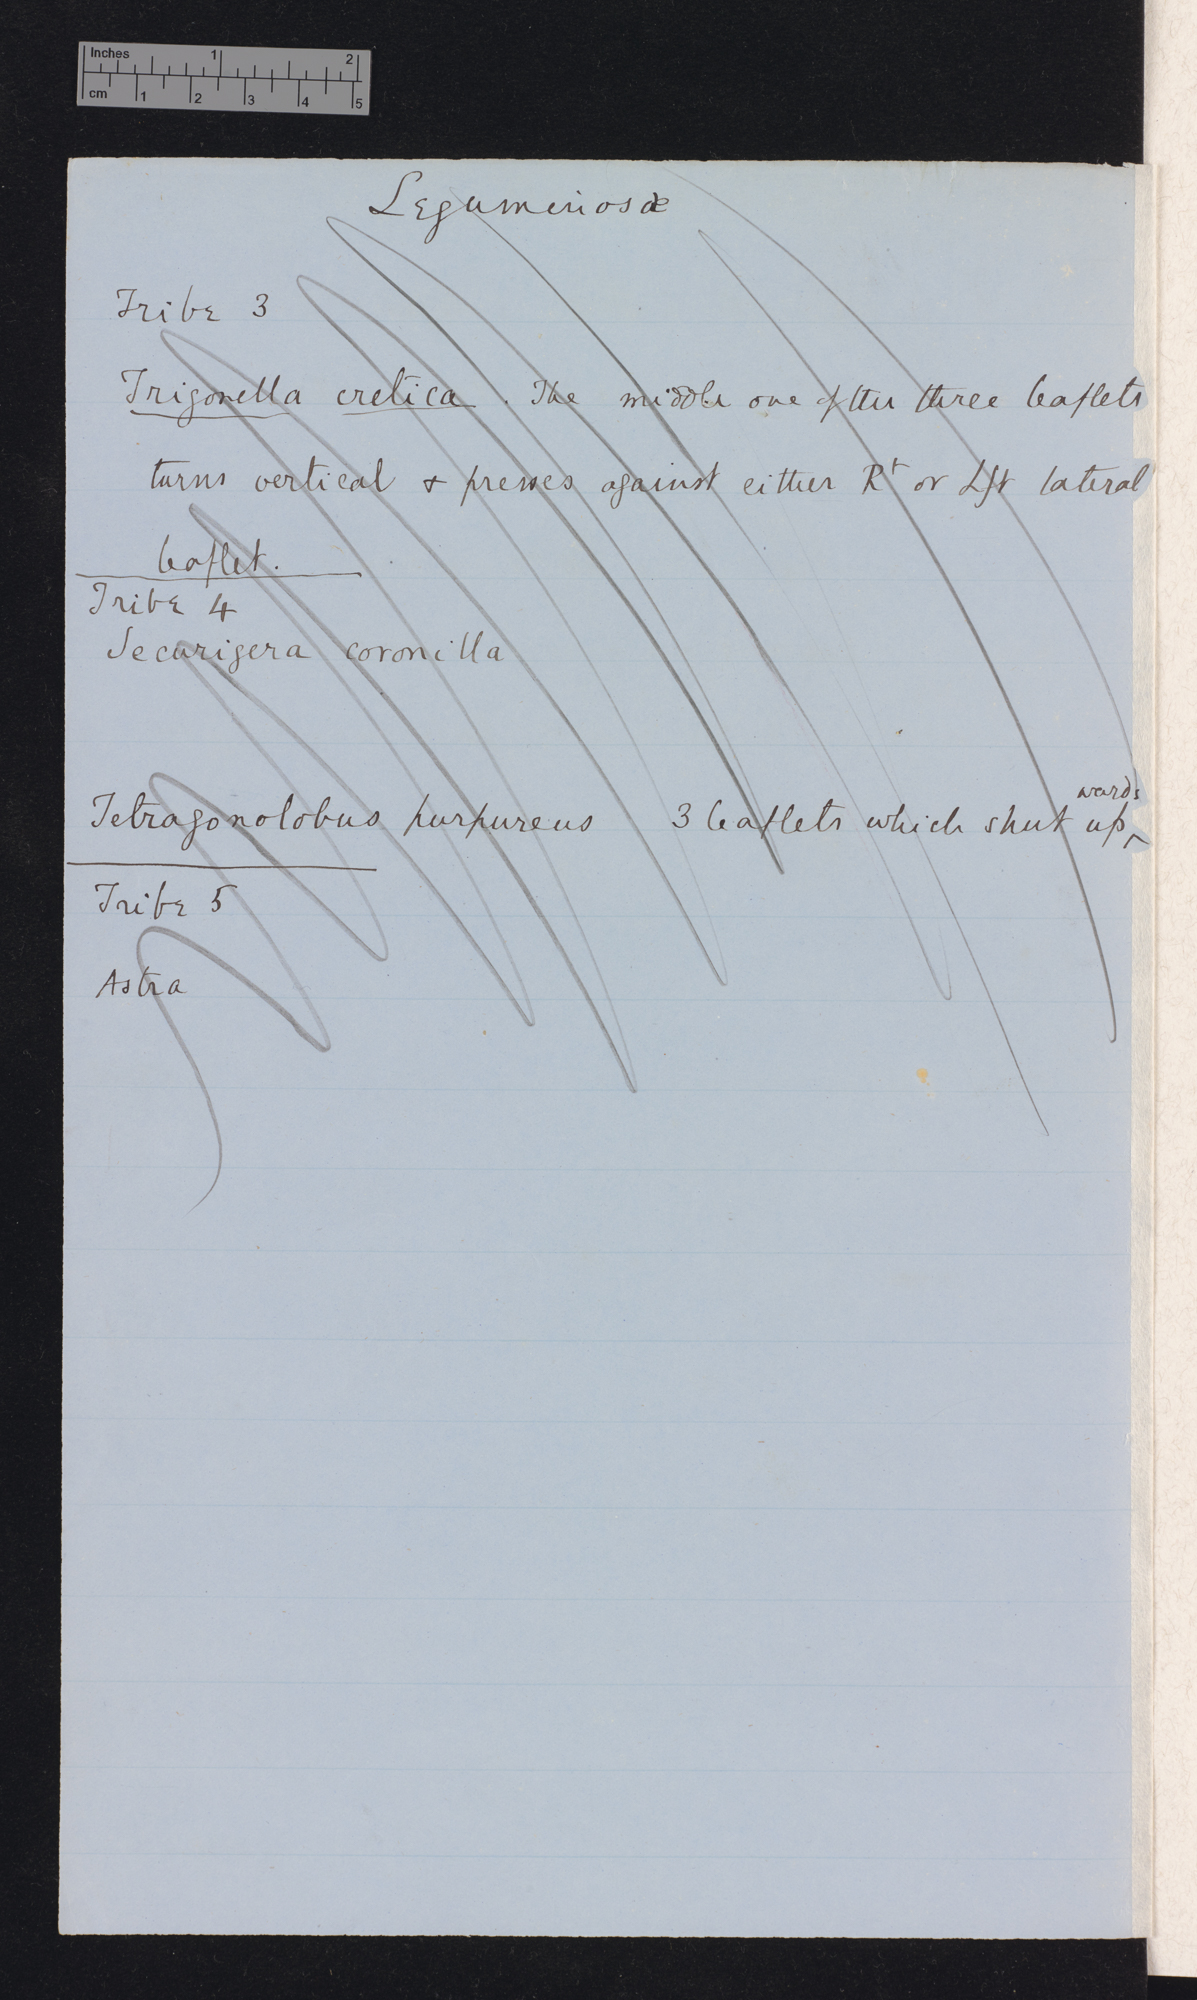 Inches 1 2
cm 1 2 3 4 5
Leguminosæ
Tribe 3
Trigonella cretica. The middle one of the three leaflets
turns vertical & presses against either Rt or Lft lateral
leaflet.
Tribe 4
Securigera coronilla
wards
Tetragonolobus purpureus 3 leaflets which shut up^
Tribe 5
Astra